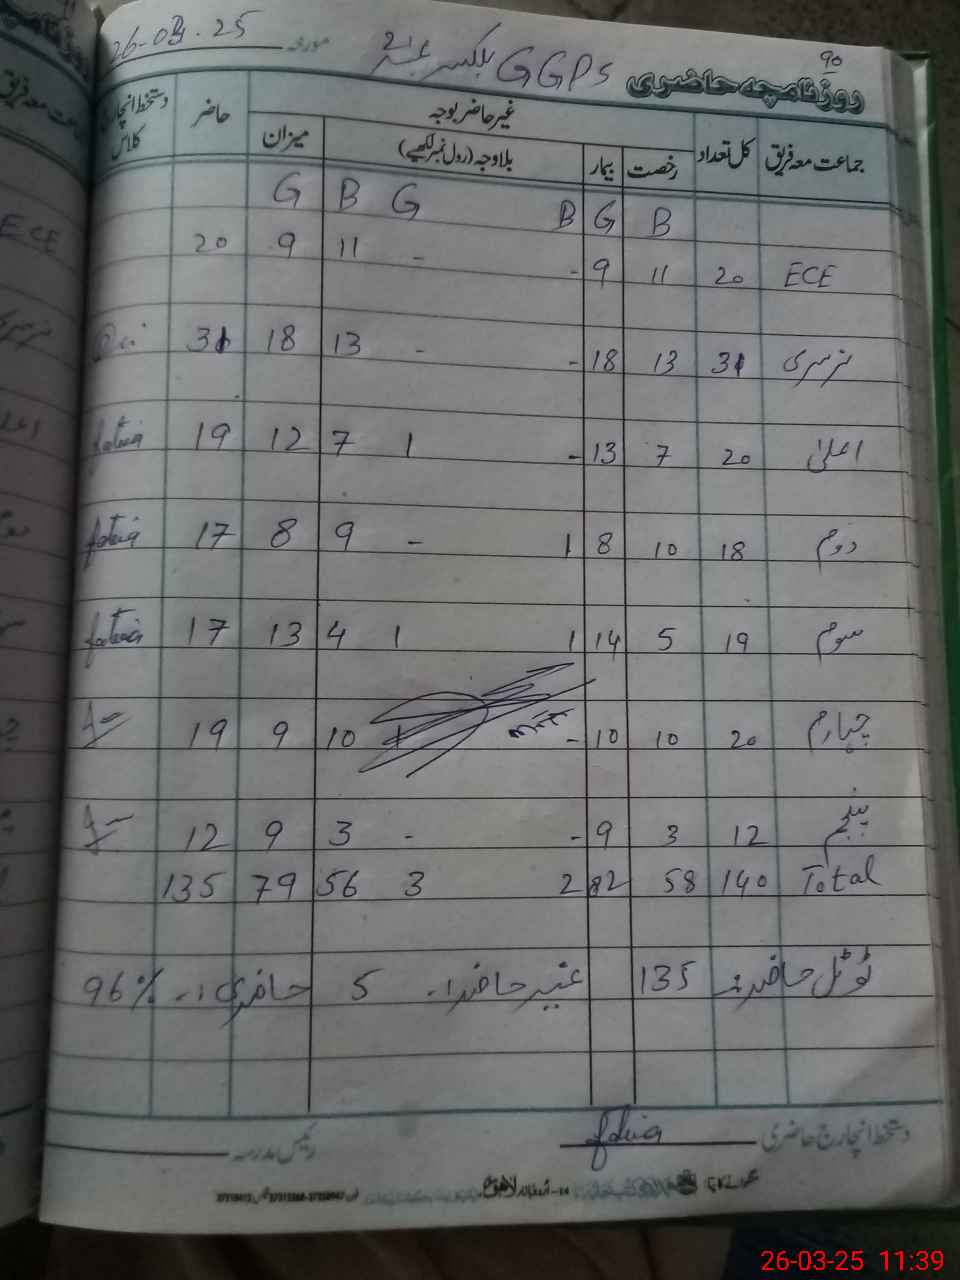 90
روزنامچہ حاضری GGPS بلکسر نمبر 2 مورخہ 26-03-25
جماعت معہ فریق کل تعداد غیر حاضر بوجہ حاضر دستخط انچارج کلاس
رخصت بیمار بلاوجہ (رول نمبر لکھیے) میزان
B G B G B G
ECE 20 11 9 - - 11 9 20
نرسری 31 13 18 - - 13 18 31
اعلیٰ 20 7 13 - 1 7 12 19 fatia
دوم 18 10 8 1 - 9 8 17 fatia
سوم 19 5 14 1 1 4 13 17 fatia
چہارم 20 10 10 - 1 10 9 19
پنجم 12 3 9 - - 3 9 12
Total 140 58 82 2 3 56 79 135
ٹوٹل حاضر :- 135 غیر حاضر :- 5 حاضری :- 96%
دستخط انچارج حاضری fatia رئیس مدرسہ
26-03-25 11:39